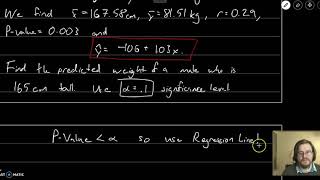 We find x̄=167.58cm, ȳ=81.51kg, r=0.29,
P-value=0.003 and
ŷ=-106+103x.
Find the predicted weight of a male who is
165cm tall. Use α=.1 significance level
P-Value < α so use Regression Line!